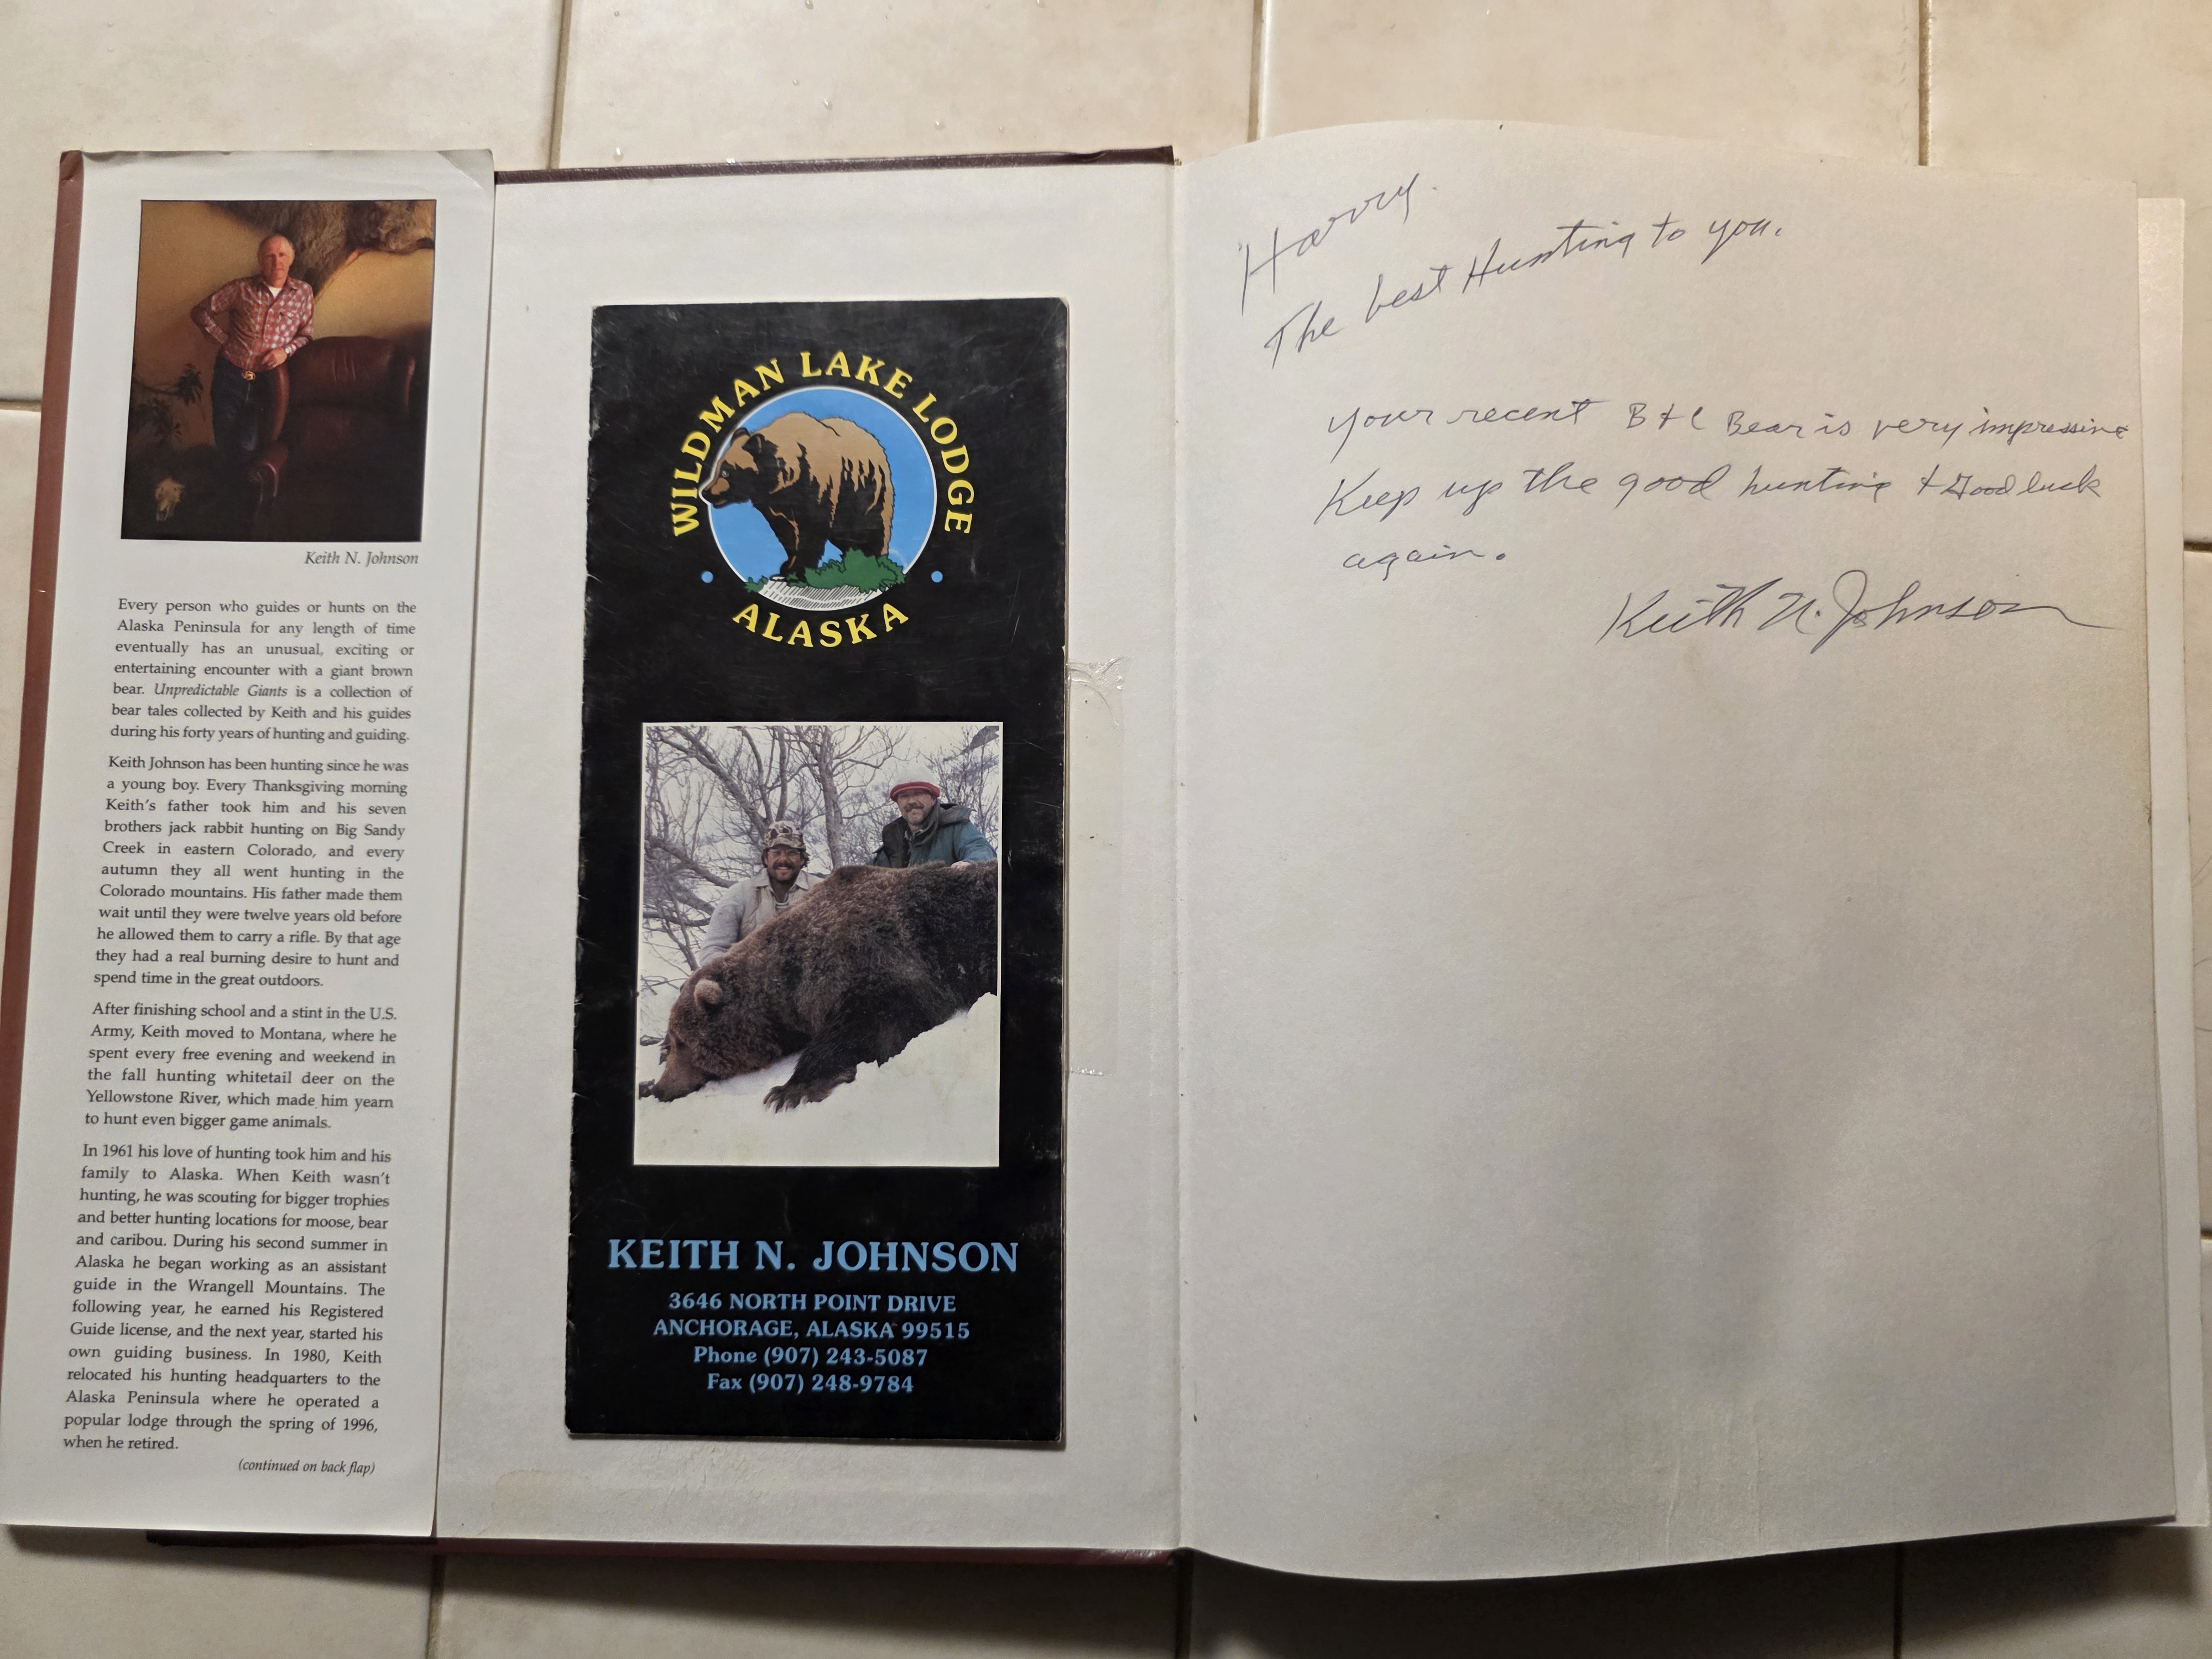 Keith N. Johnson
Every person who guides or hunts on the
Alaska Peninsula for any length of time
eventually has an unusual, exciting or
entertaining encounter with a giant brown
bear. Unpredictable Giants is a collection of
bear tales collected by Keith and his guides
during his forty years of hunting and guiding.
Keith Johnson has been hunting since he was
a young boy. Every Thanksgiving morning
Keith's father took him and his seven
brothers jack rabbit hunting on Big Sandy
Creek in eastern Colorado, and every
autumn they all went hunting in the
Colorado mountains. His father made them
wait until they were twelve years old before
he allowed them to carry a rifle. By that age
they had a real burning desire to hunt and
spend time in the great outdoors.
After finishing school and a stint in the U.S.
Army, Keith moved to Montana, where he
spent every free evening and weekend in
the fall hunting whitetail deer on the
Yellowstone River, which made him yearn
to hunt even bigger game animals.
In 1961 his love of hunting took him and his
family to Alaska. When Keith wasn't
hunting, he was scouting for bigger trophies
and better hunting locations for moose, bear
and caribou. During his second summer in
Alaska he began working as an assistant
guide in the Wrangell Mountains. The
following year, he earned his Registered
Guide license, and the next year, started his
own guiding business. In 1980, Keith
relocated his hunting headquarters to the
Alaska Peninsula where he operated a
popular lodge through the spring of 1996,
when he retired.
(continued on back flap)
WILDMAN LAKE LODGE
ALASKA
KEITH N. JOHNSON
3646 NORTH POINT DRIVE
ANCHORAGE, ALASKA 99515
Phone (907) 243-5087
Fax (907) 248-9784
Harry.
The best Hunting to you.
Your recent B+C Bear is very impressive
Keep up the good hunting + Good luck
again.
Keith N. Johnson